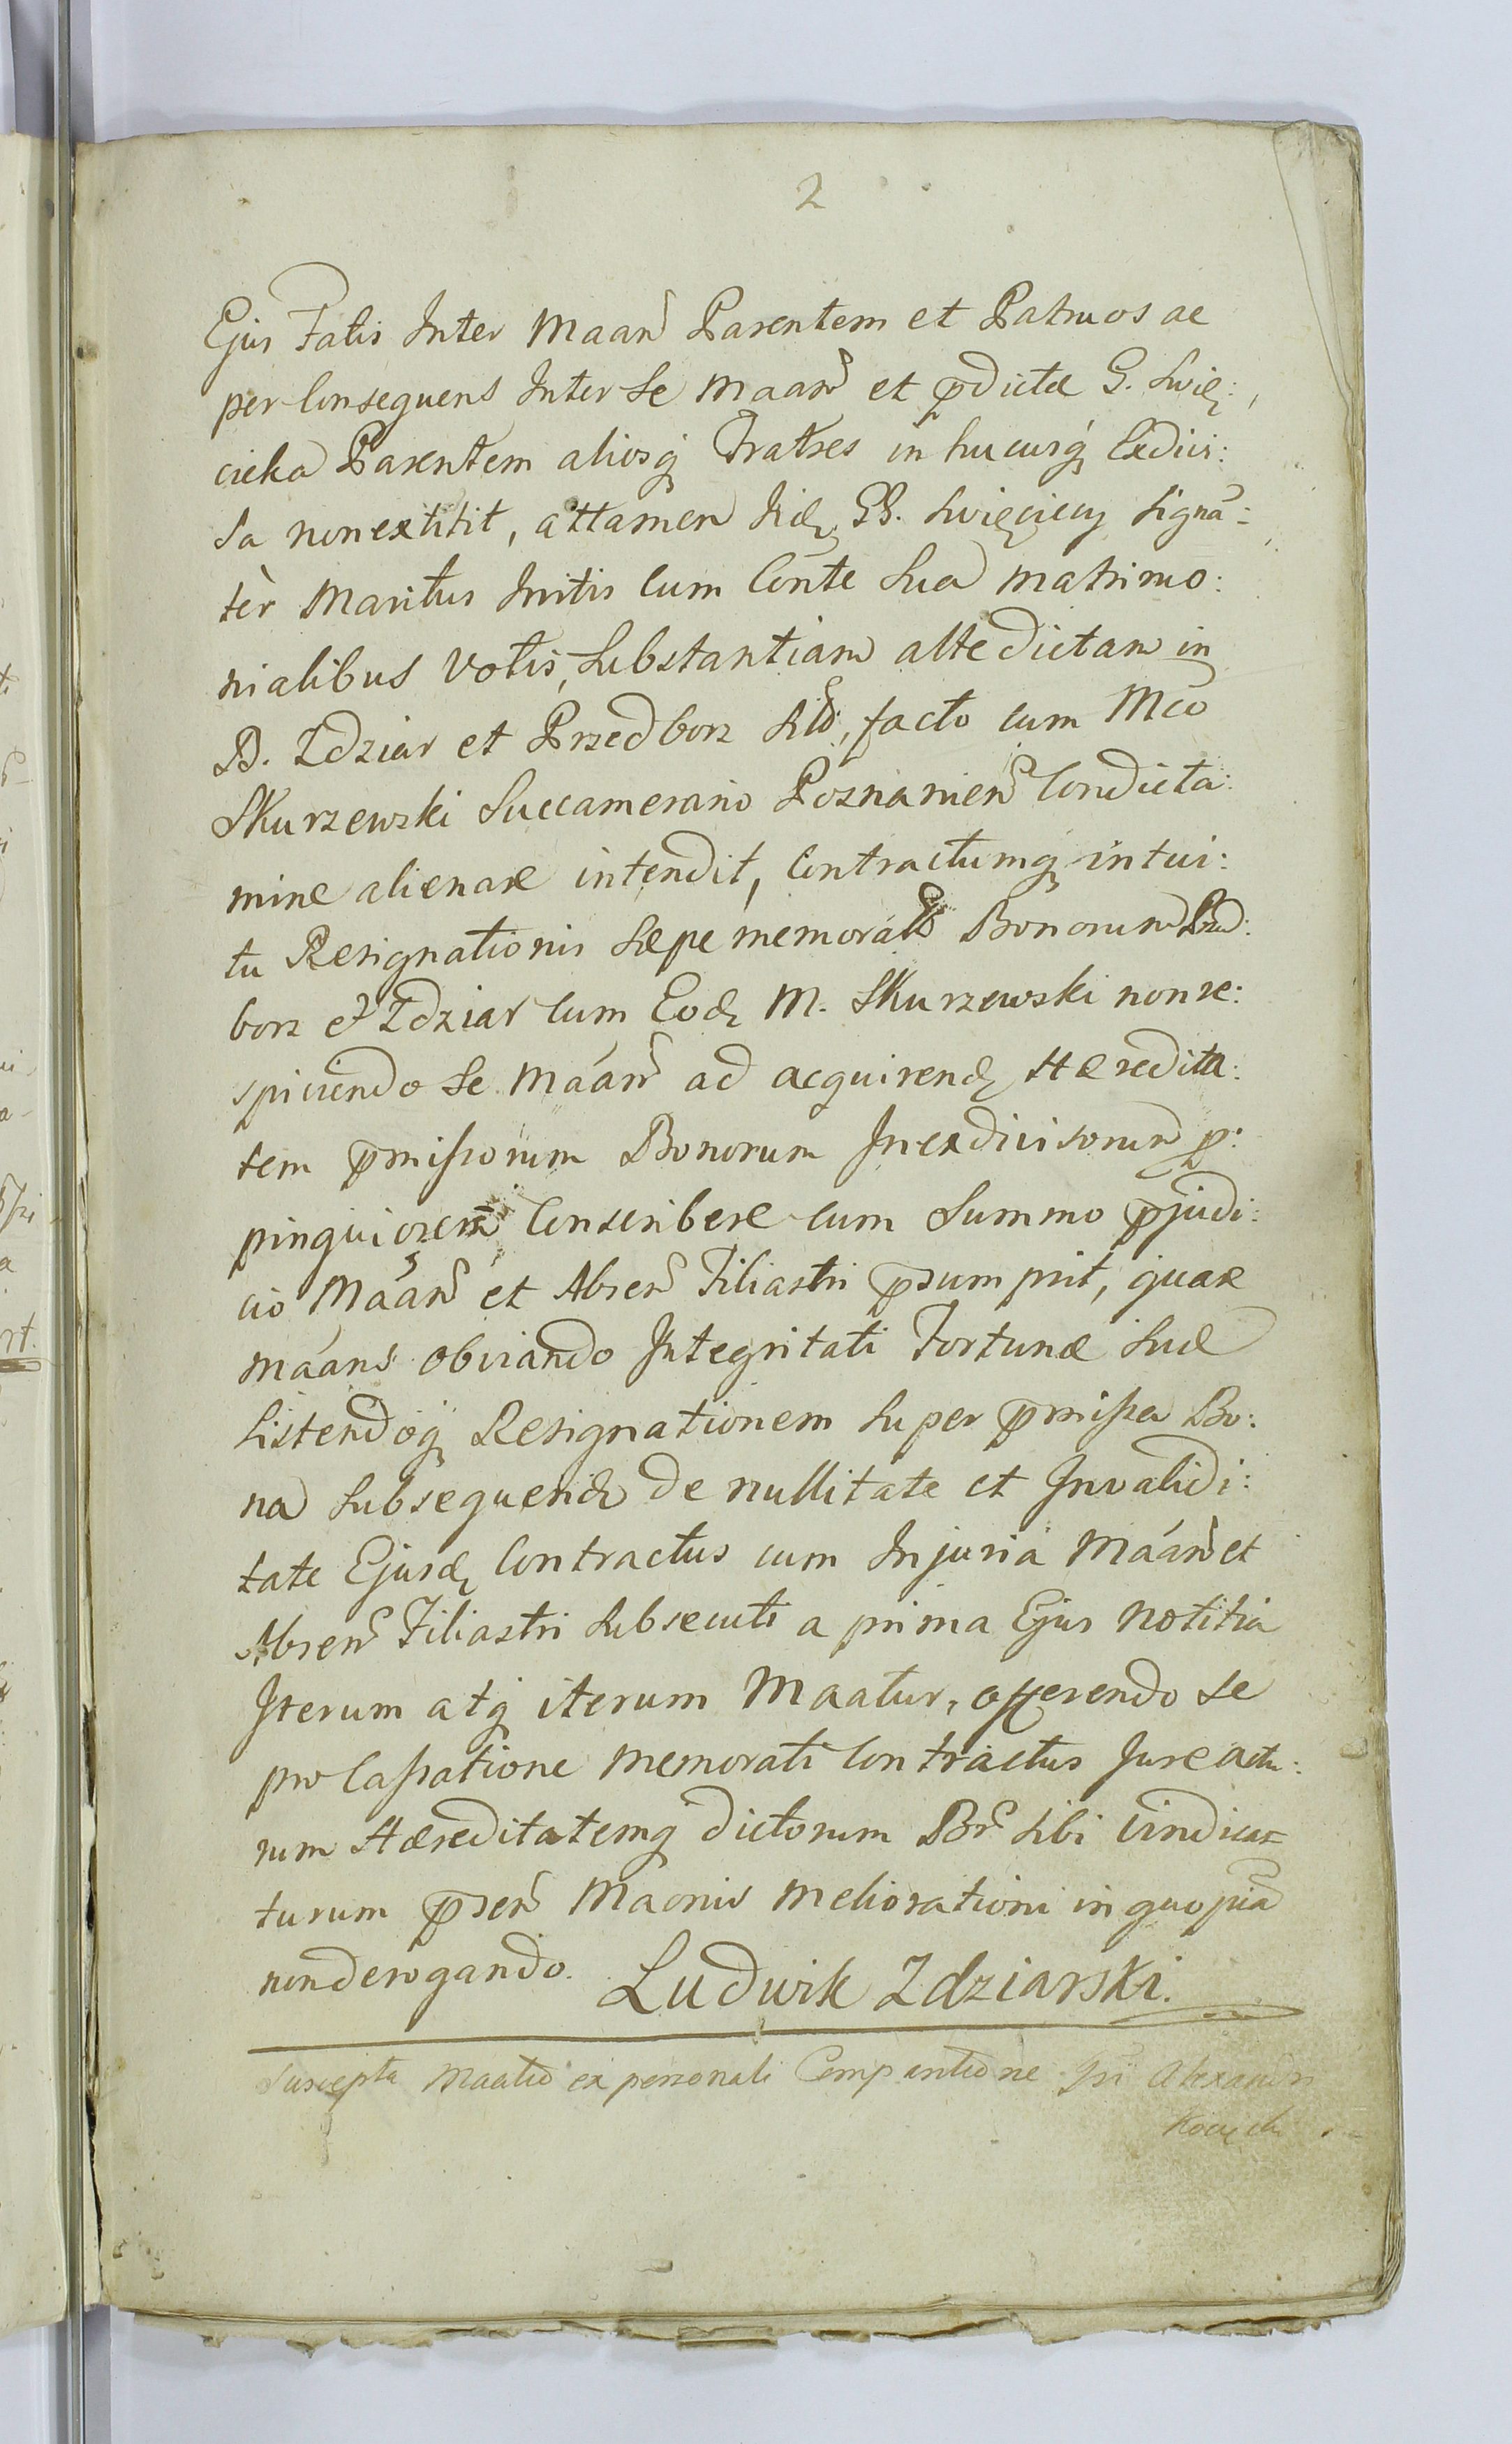 2
Ejus Fatis Inter Maan Parentem et Patruos ac
per Consequens Inter Se Maan et pdictæ G. Swię:
cicka Parentem aliosq Fratres in hucusq Exdivi:
sa non extitit, attamen Iid GG. Swięciccy Signa:
tèr Maritus Initis Cum Conte Sua matrimo:
nialibus Votis, Substantiam alte dictam in
B. Zdziar et Przedborz Sitt, facto cum Mco
Skurzewski Succamerario Posnanien Condicta:
mine alienare intendit, Contractumq intui:
tu Resignationis Sæpe memorat Bonorum Przed:
borz et Zdziar Cum Eod M. Skurzewski non re:
spiciendo Se Máan ad acquirend Hæredita:
tem pmissorum Bonorum Inexdivisorum p:
pinquiorem Conscribere cum Summo pjudi:
cio Máan et Absen Filiastri psumpsit, quare
máans obviando Integritati Fortunæ Suæ
Sistendoq Resignationem Super pmissa Bo:
na Subsequend de nullitate et Invalidi:
tate Ejusd Contractus cum Injuria Máan et
Absen Filiastri Subsecuti a prima Ejus Notitia
Iterum atq iterum Maatur, offerendo Se
pro Cassatione Memorati Contractus Jure actu:
rum Hæreditatemq dictorum Bn Sibi Vindica:
turum psen Maonis Meliorationi in quopiam
non derogando. Ludwik Zdziarski.
Suscepta Maatio ex personali Comparitione Alexandri